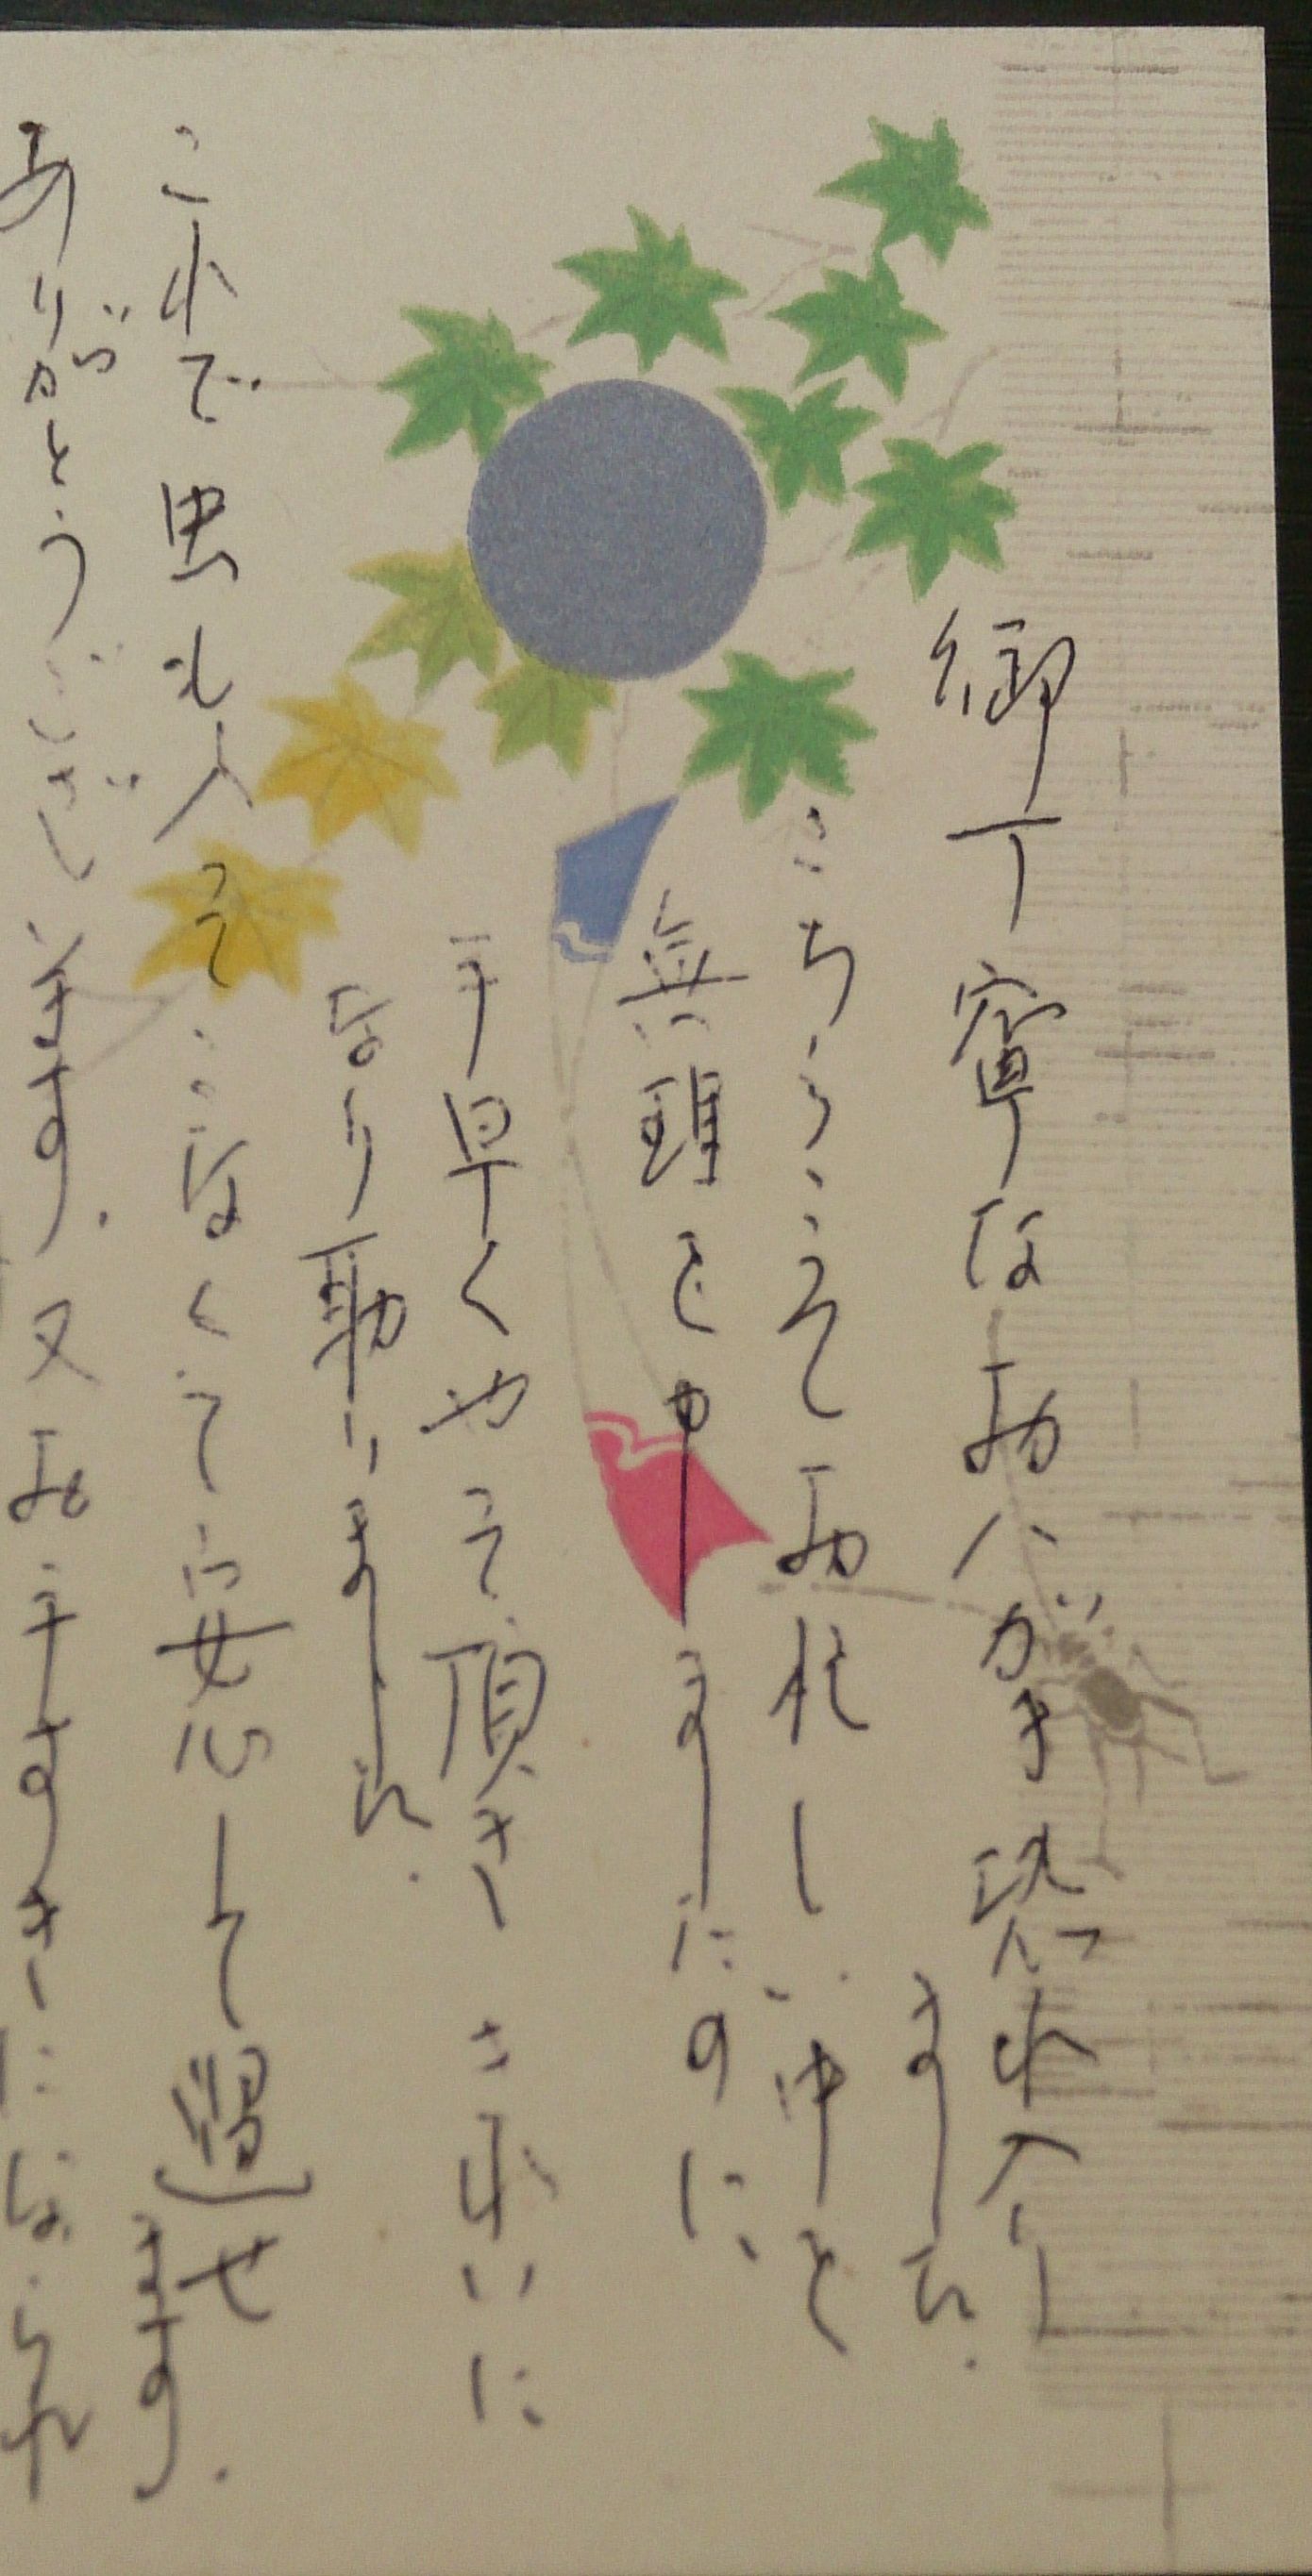 御丁寧なおハガキ恐れ入り
ました.
こちらこそお忙しい中を
無理を申しましたのに、
手早くやって頂き きれいに
なり助かりました.
これで虫も入ってこなくて安心して過せ
ます.
ありがとうございます. 又お手すきになられ